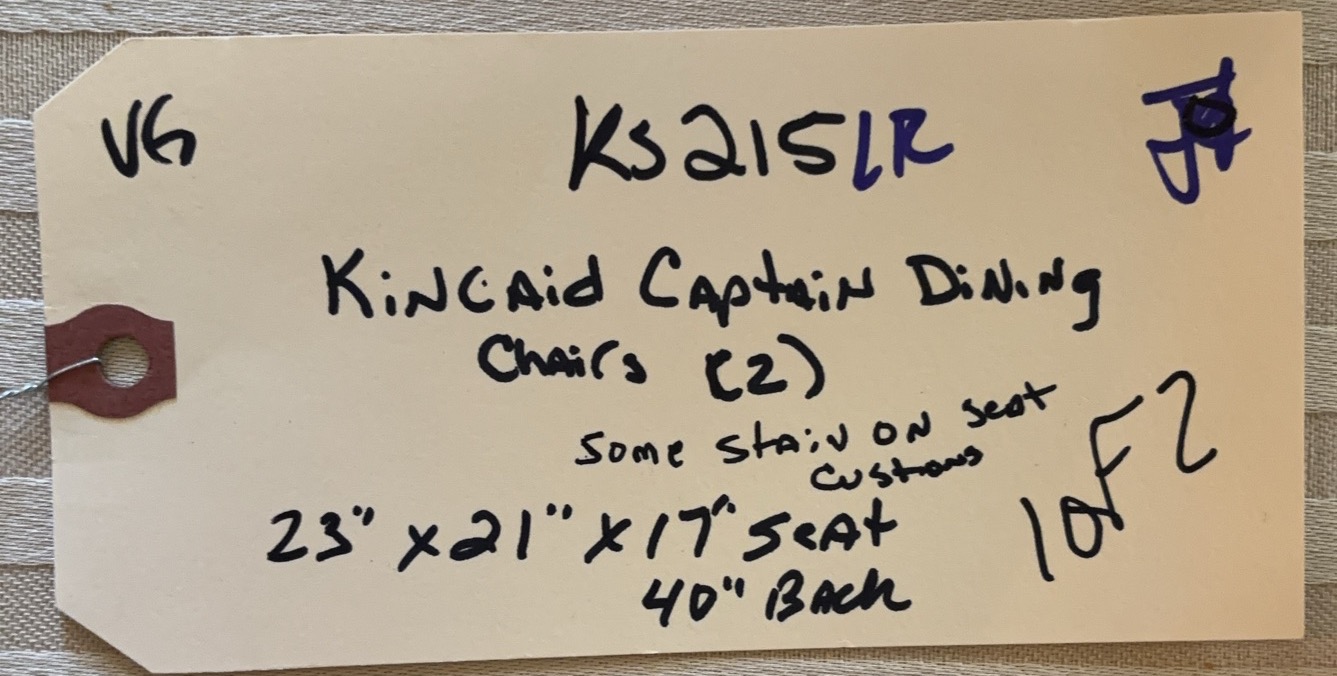 VG
KS215LR
KiNCAid CAptAiN DiNiNg
ChAirs (2)
Some StAiN ON SeAt
Custions
23" x 21" x 17" SeAt
40" BAck
1 oF 2